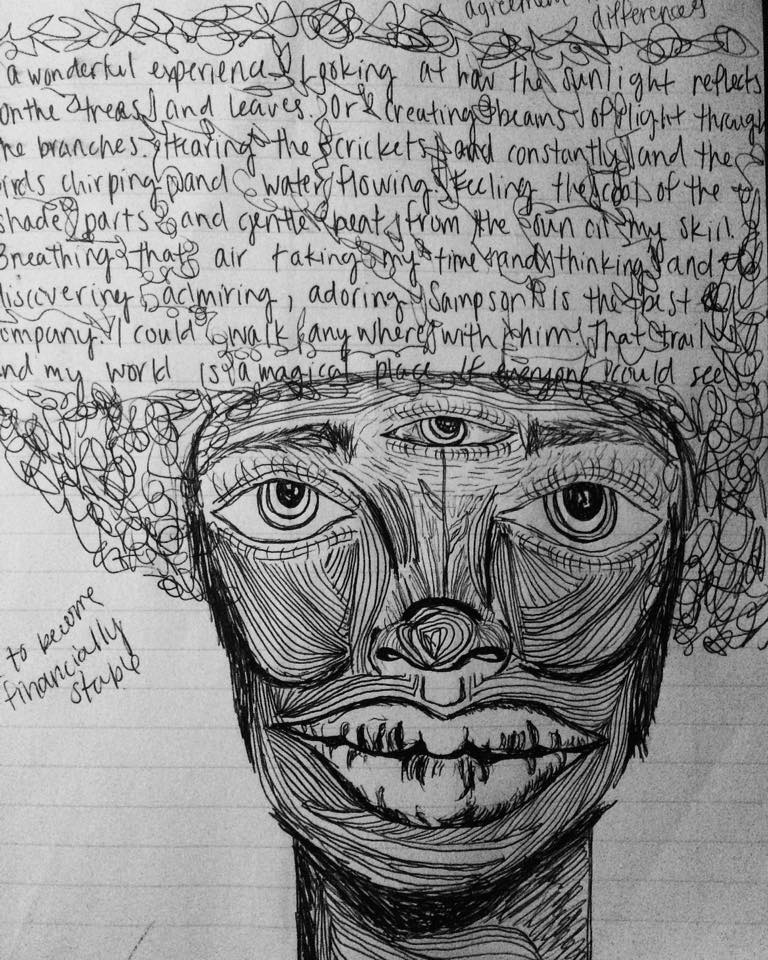 agreement
differences
a wonderful experience. Looking at how the sunlight reflects
on the trees and leaves. Or creating beams of light through
he branches. Hearing the crickets and constantly and the
irds chirping and water flowing. Feeling the cool of the
shade parts and gentle heat from the sun on my skin.
Breathing that air taking my time and thinking and
discovering, admiring, adoring. Sampson is the best
ompany. I could walk anywhere with him. That trail
nd my world is a magical place. If everyone could see
to become
financially
stable